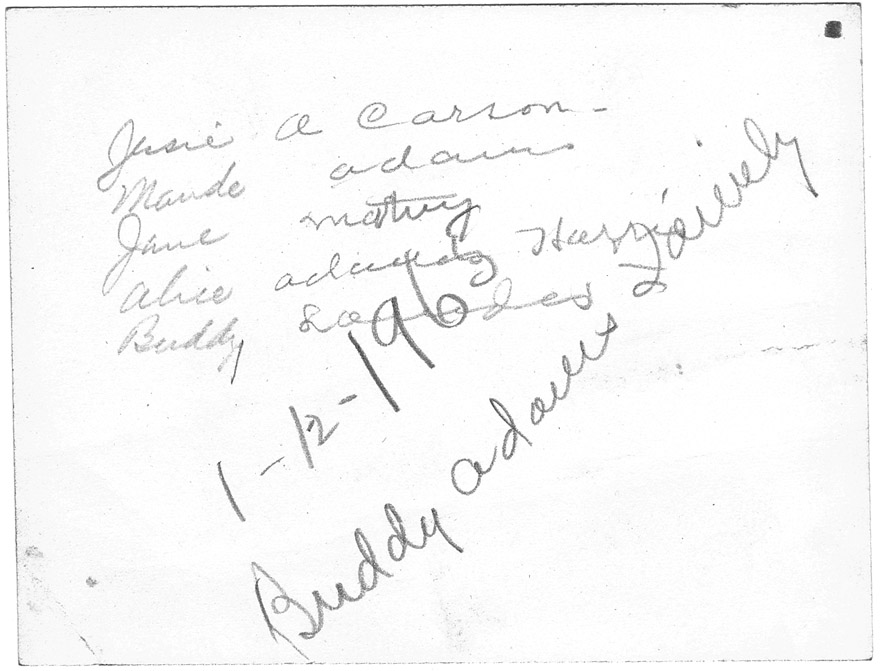 Jessie A Carson -
Maude Adams
Jane
Alice Adams Harris
Buddy
1-12-1963
Buddy Adams Family